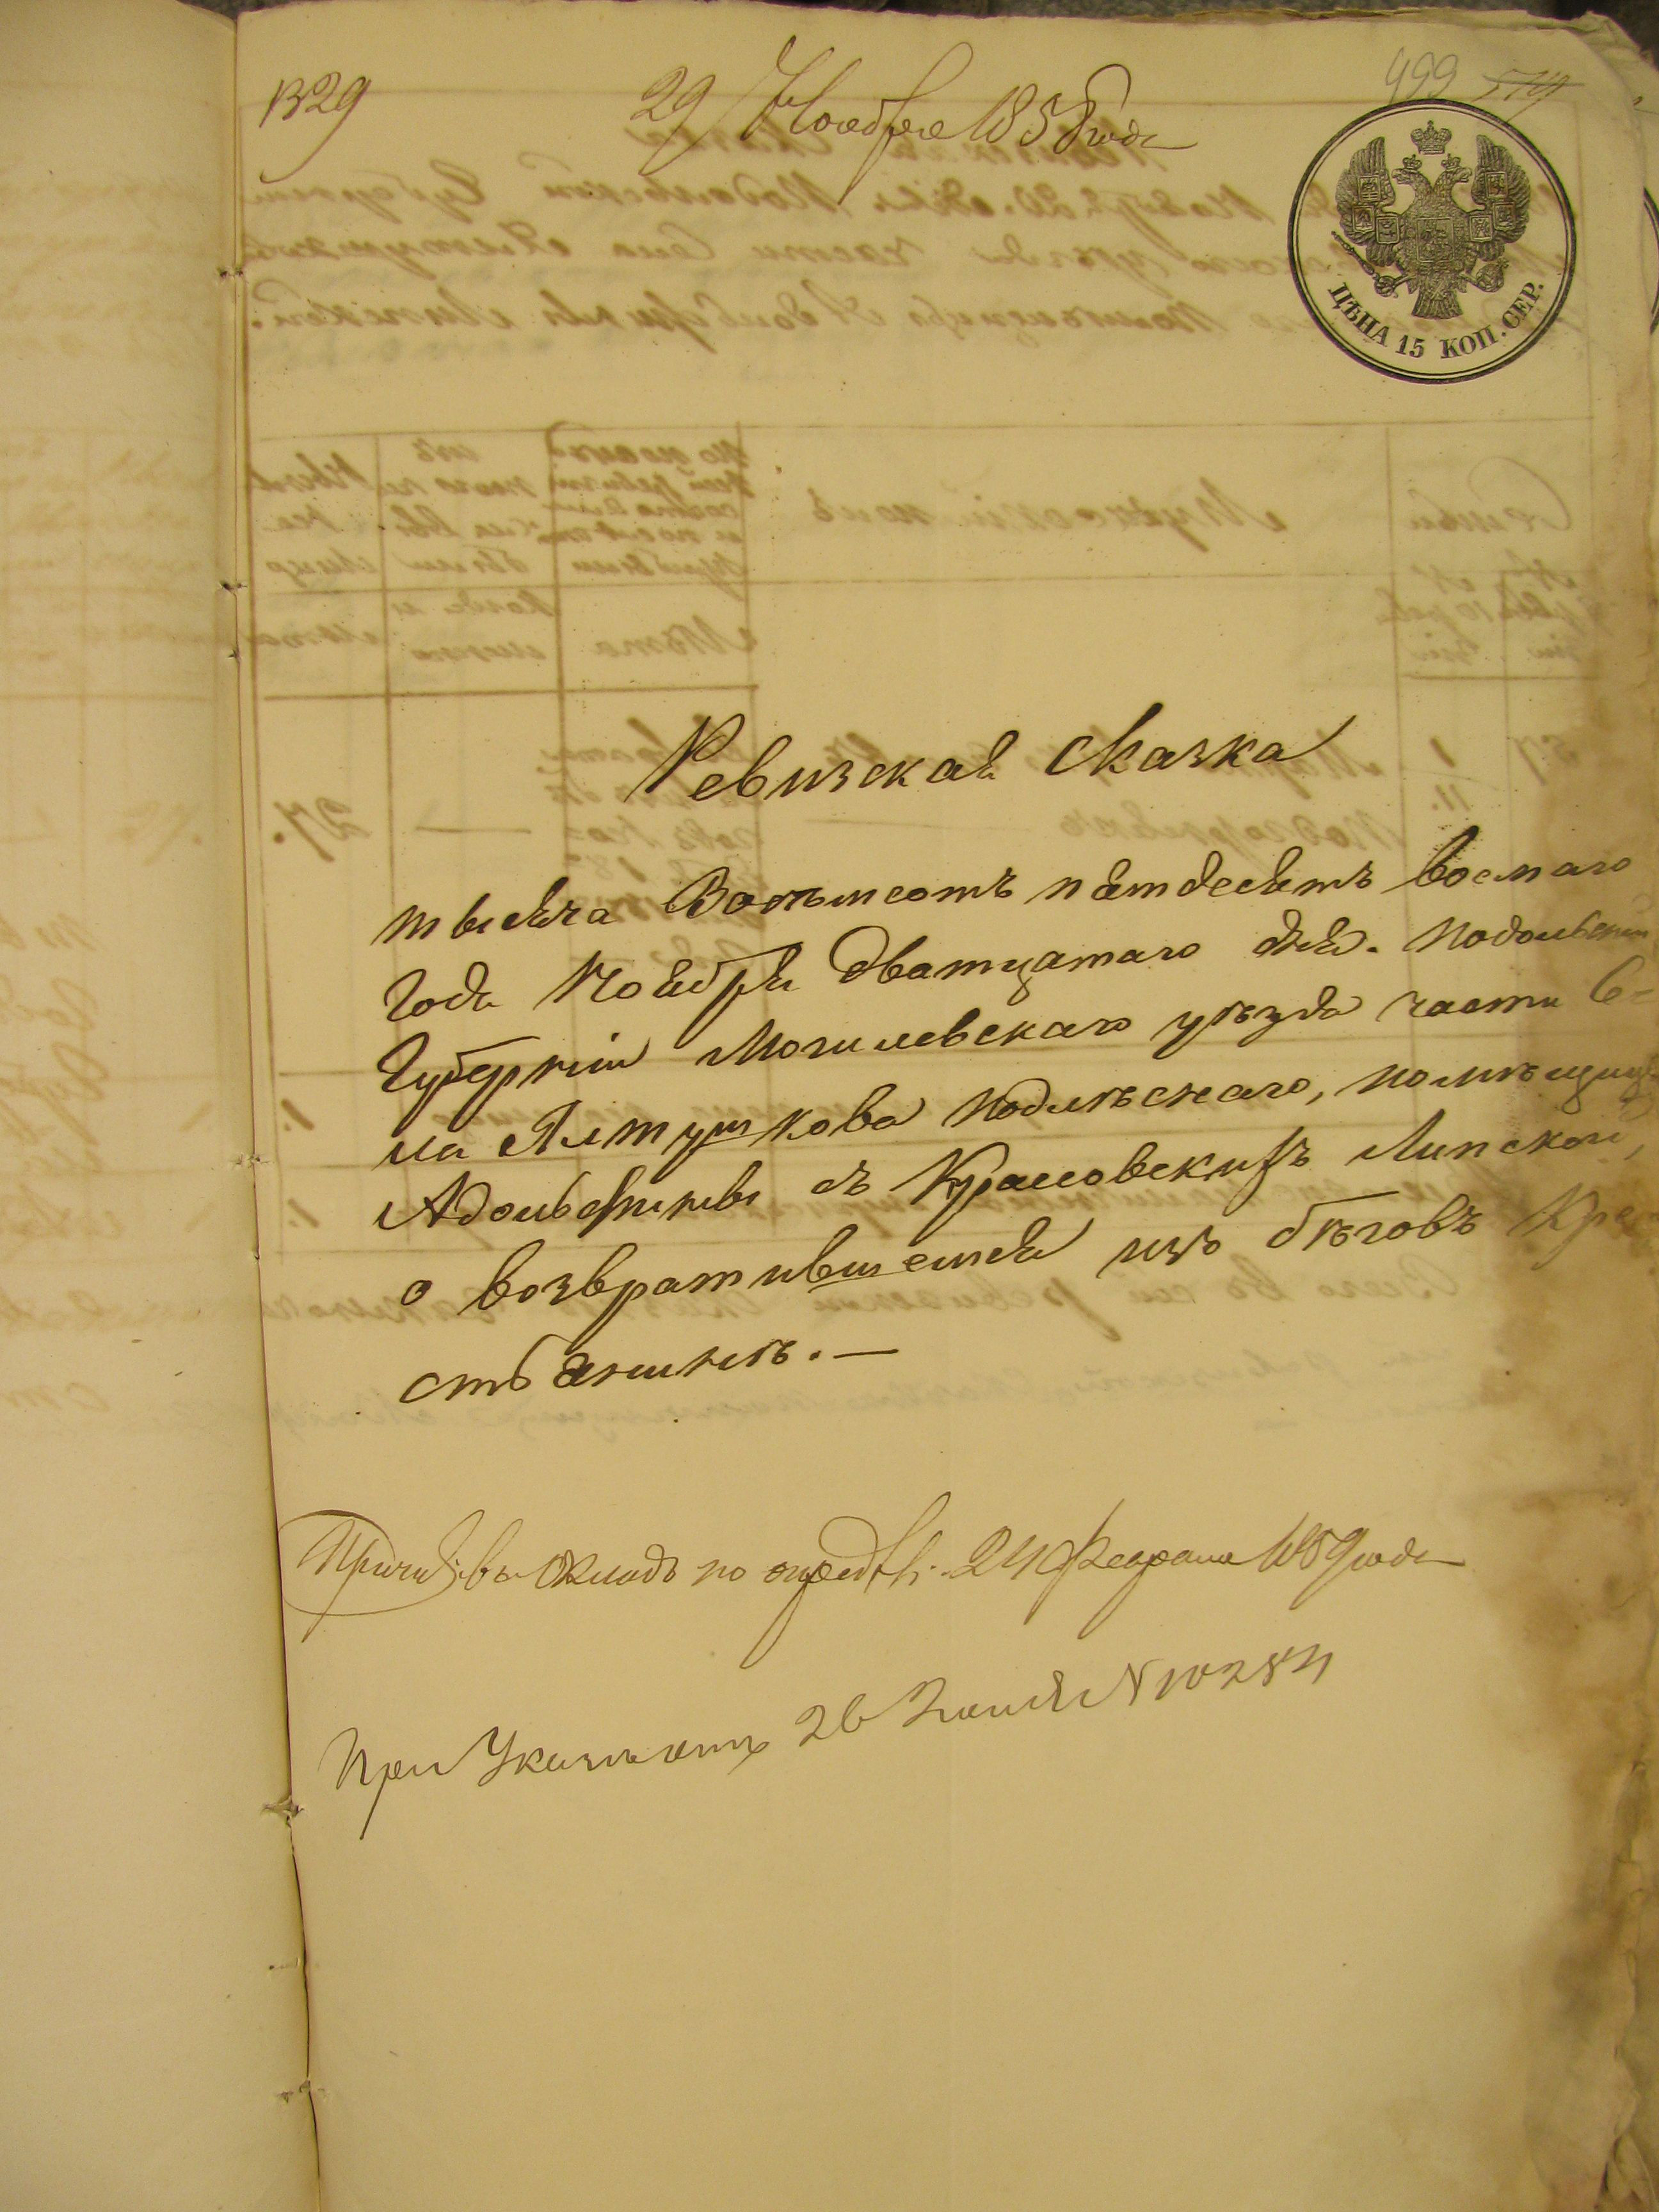 1329
29 Ноября 1858 года
499 519
ЦѢНА 15 КОП. СЕР.
Ревизская Сказка
тысяча Восемьсотъ пятдесятъ восмаго
Года Ноября Дватцатаго дня. Подольской
Губерніи Могилевскаго уѣзда части Се=
ла Ялтушкова Подлѣснаго, помѣщицы
Адольфины съ Крассовскихъ Липской,
о возвратившемся изъ бѣговъ Кре
стьянинѣ. —
въ окладъ по 24 Февраля 1859 года
При Указѣ 26 N 10284